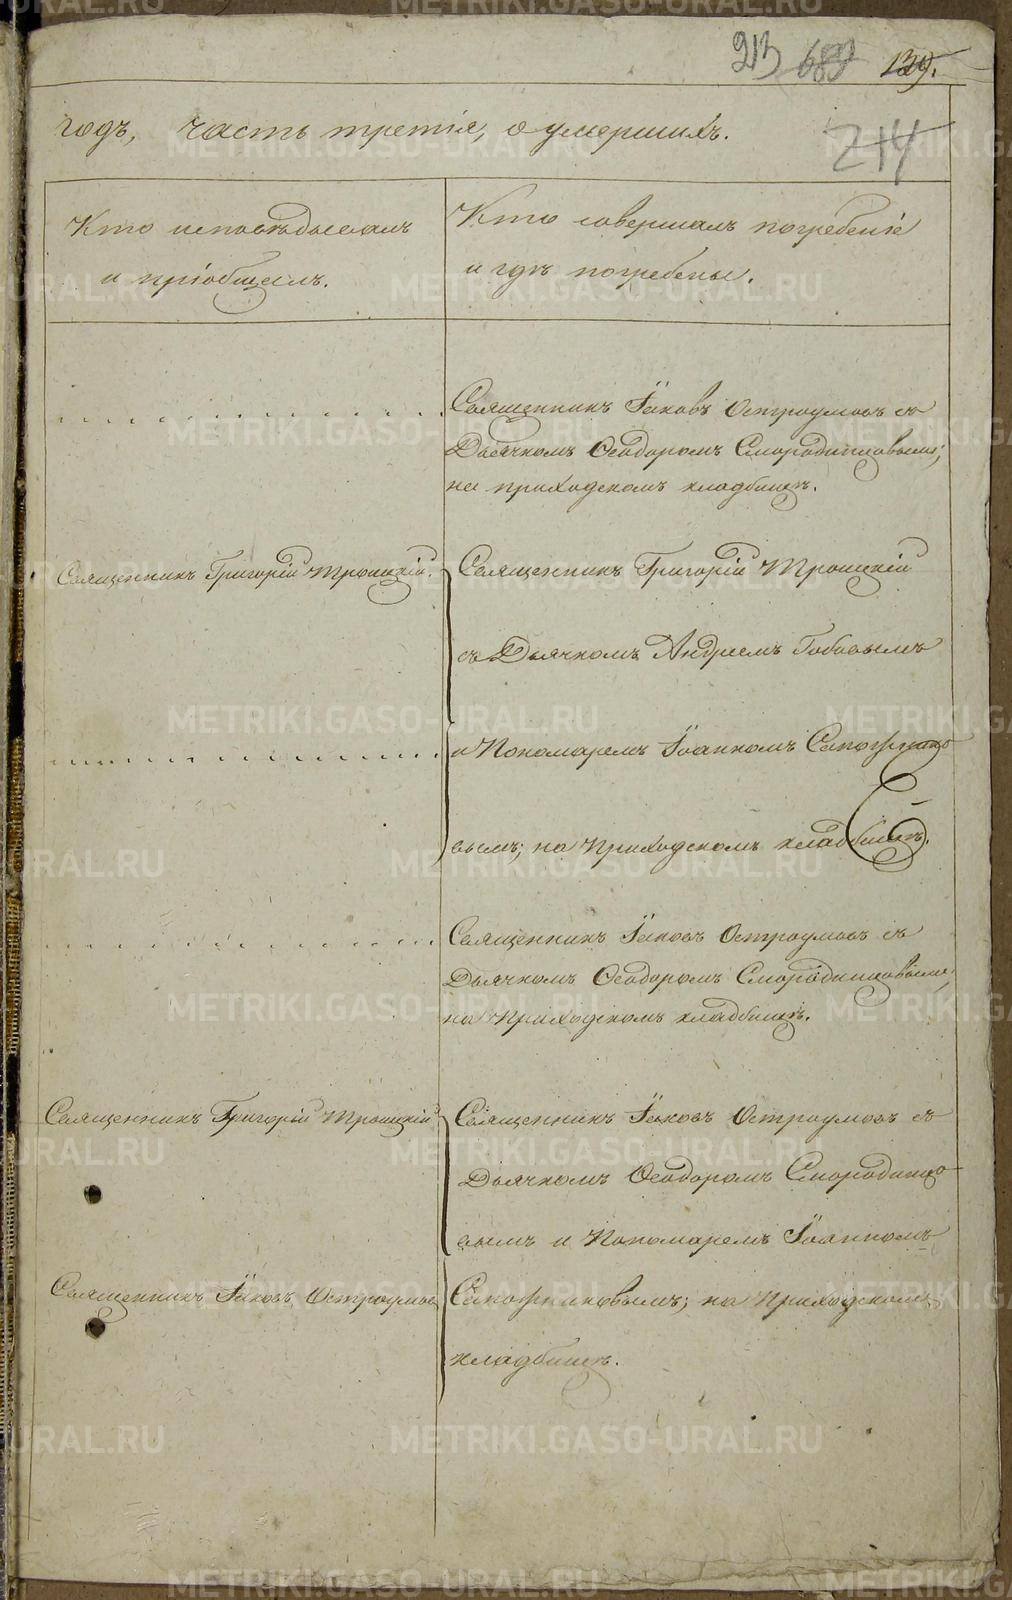 213 683 139.
214
годъ, часть третія, о умершихъ.
Кто исповѣдывалъ
и пріобщалъ.
Кто совершалъ погребеніе
и гдѣ погребены.
Священникъ Іаковъ Остроумовъ съ
Дьячкомъ Ѳеодоромъ Смородинцовымъ;
на приходскомъ кладбищѣ.
Священникъ Григорій Троицкій.
Священникъ Григорій Троицкій
съ Дьячкомъ Андреемъ
и Пономаремъ Іоанномъ Сапожнико
вымъ; на Приходскомъ кладбищѣ.
Священникъ Іаковъ Остроумовъ съ
Дьячкомъ Ѳеодоромъ Смородинцовымъ,
на Приходскомъ кладбищѣ.
Священникъ Григорій Троицкій
Священникъ Іаковъ Остроумовъ съ
Дьячкомъ Ѳеодоромъ Смородинцо
вымъ и Пономаремъ Іоанномъ
Священникъ Іаковъ Остроумовъ
Сапожниковымъ; на Приходскомъ
кладбищѣ.
METRIKI.GASO-URAL.RU